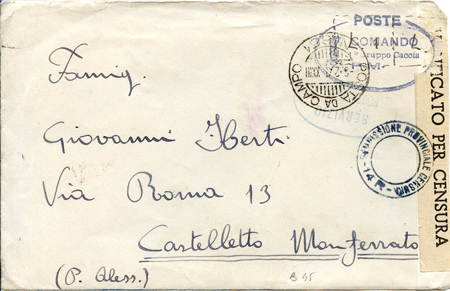 POSTE
COMANDO
Gruppo Caccia
P.M.
POSTA DA CAMPO
SERVIZIO
Famig.
Giovanni Iberti
Via Roma 13
Castelletto Monferrato
(P. Aless.)
B 45
COMMISSIONE PROVINCIALE CENSURA
14 R
VERIFICATO PER CENSURA